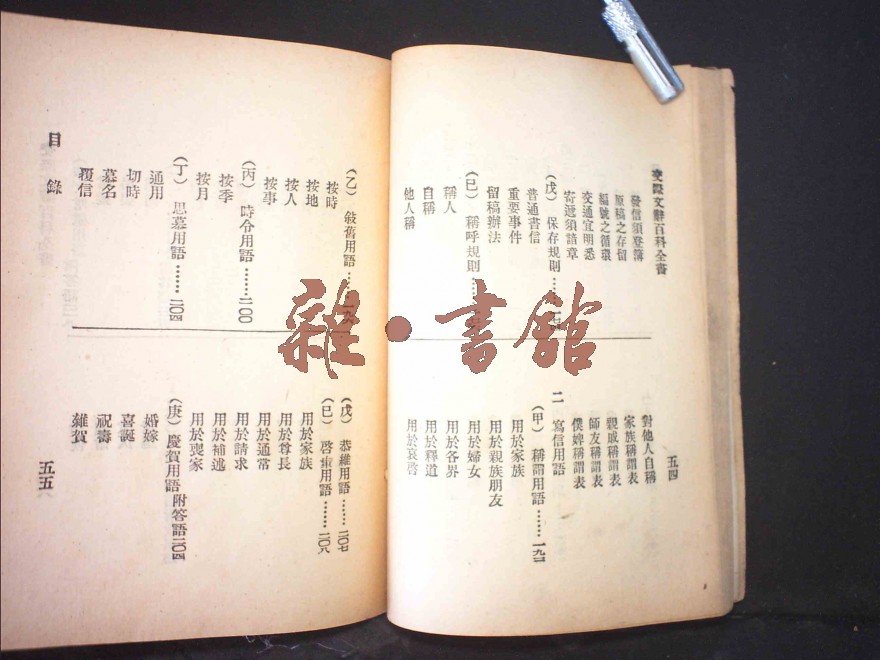 交際文辭百科全書
發信須登簿
原稿之存留
編號之循環
交通宜明悉
寄遞須請章
(戊) 保存規則……
普通書信
重要事件
留稿辦法
(巳) 稱呼規則……
稱人
自稱
他人稱
對他人自稱
家族稱謂表
親戚稱謂表
師友稱謂表
僕婢稱謂表
二 寫信用語
(甲) 稱謂用語……一九二
用於家族
用於親族朋友
用於婦女
用於各界
用於釋道
用於哀啓
五四
(乙) 敍舊用語……
按時
按地
按人
按事
(丙) 時令用語……二〇〇
按季
按月
(丁) 思慕用語……二〇四
通用
切時
慕名
覆信
目錄
(戊) 恭維用語……二〇七
(巳) 啓事用語……二〇八
用於家族
用於尊長
用於通常
用於請求
用於補遞
用於喪家
(庚) 慶賀用語 附答語二〇四
婚嫁
喜誕
祝壽
雜賀
五五
雜·書館